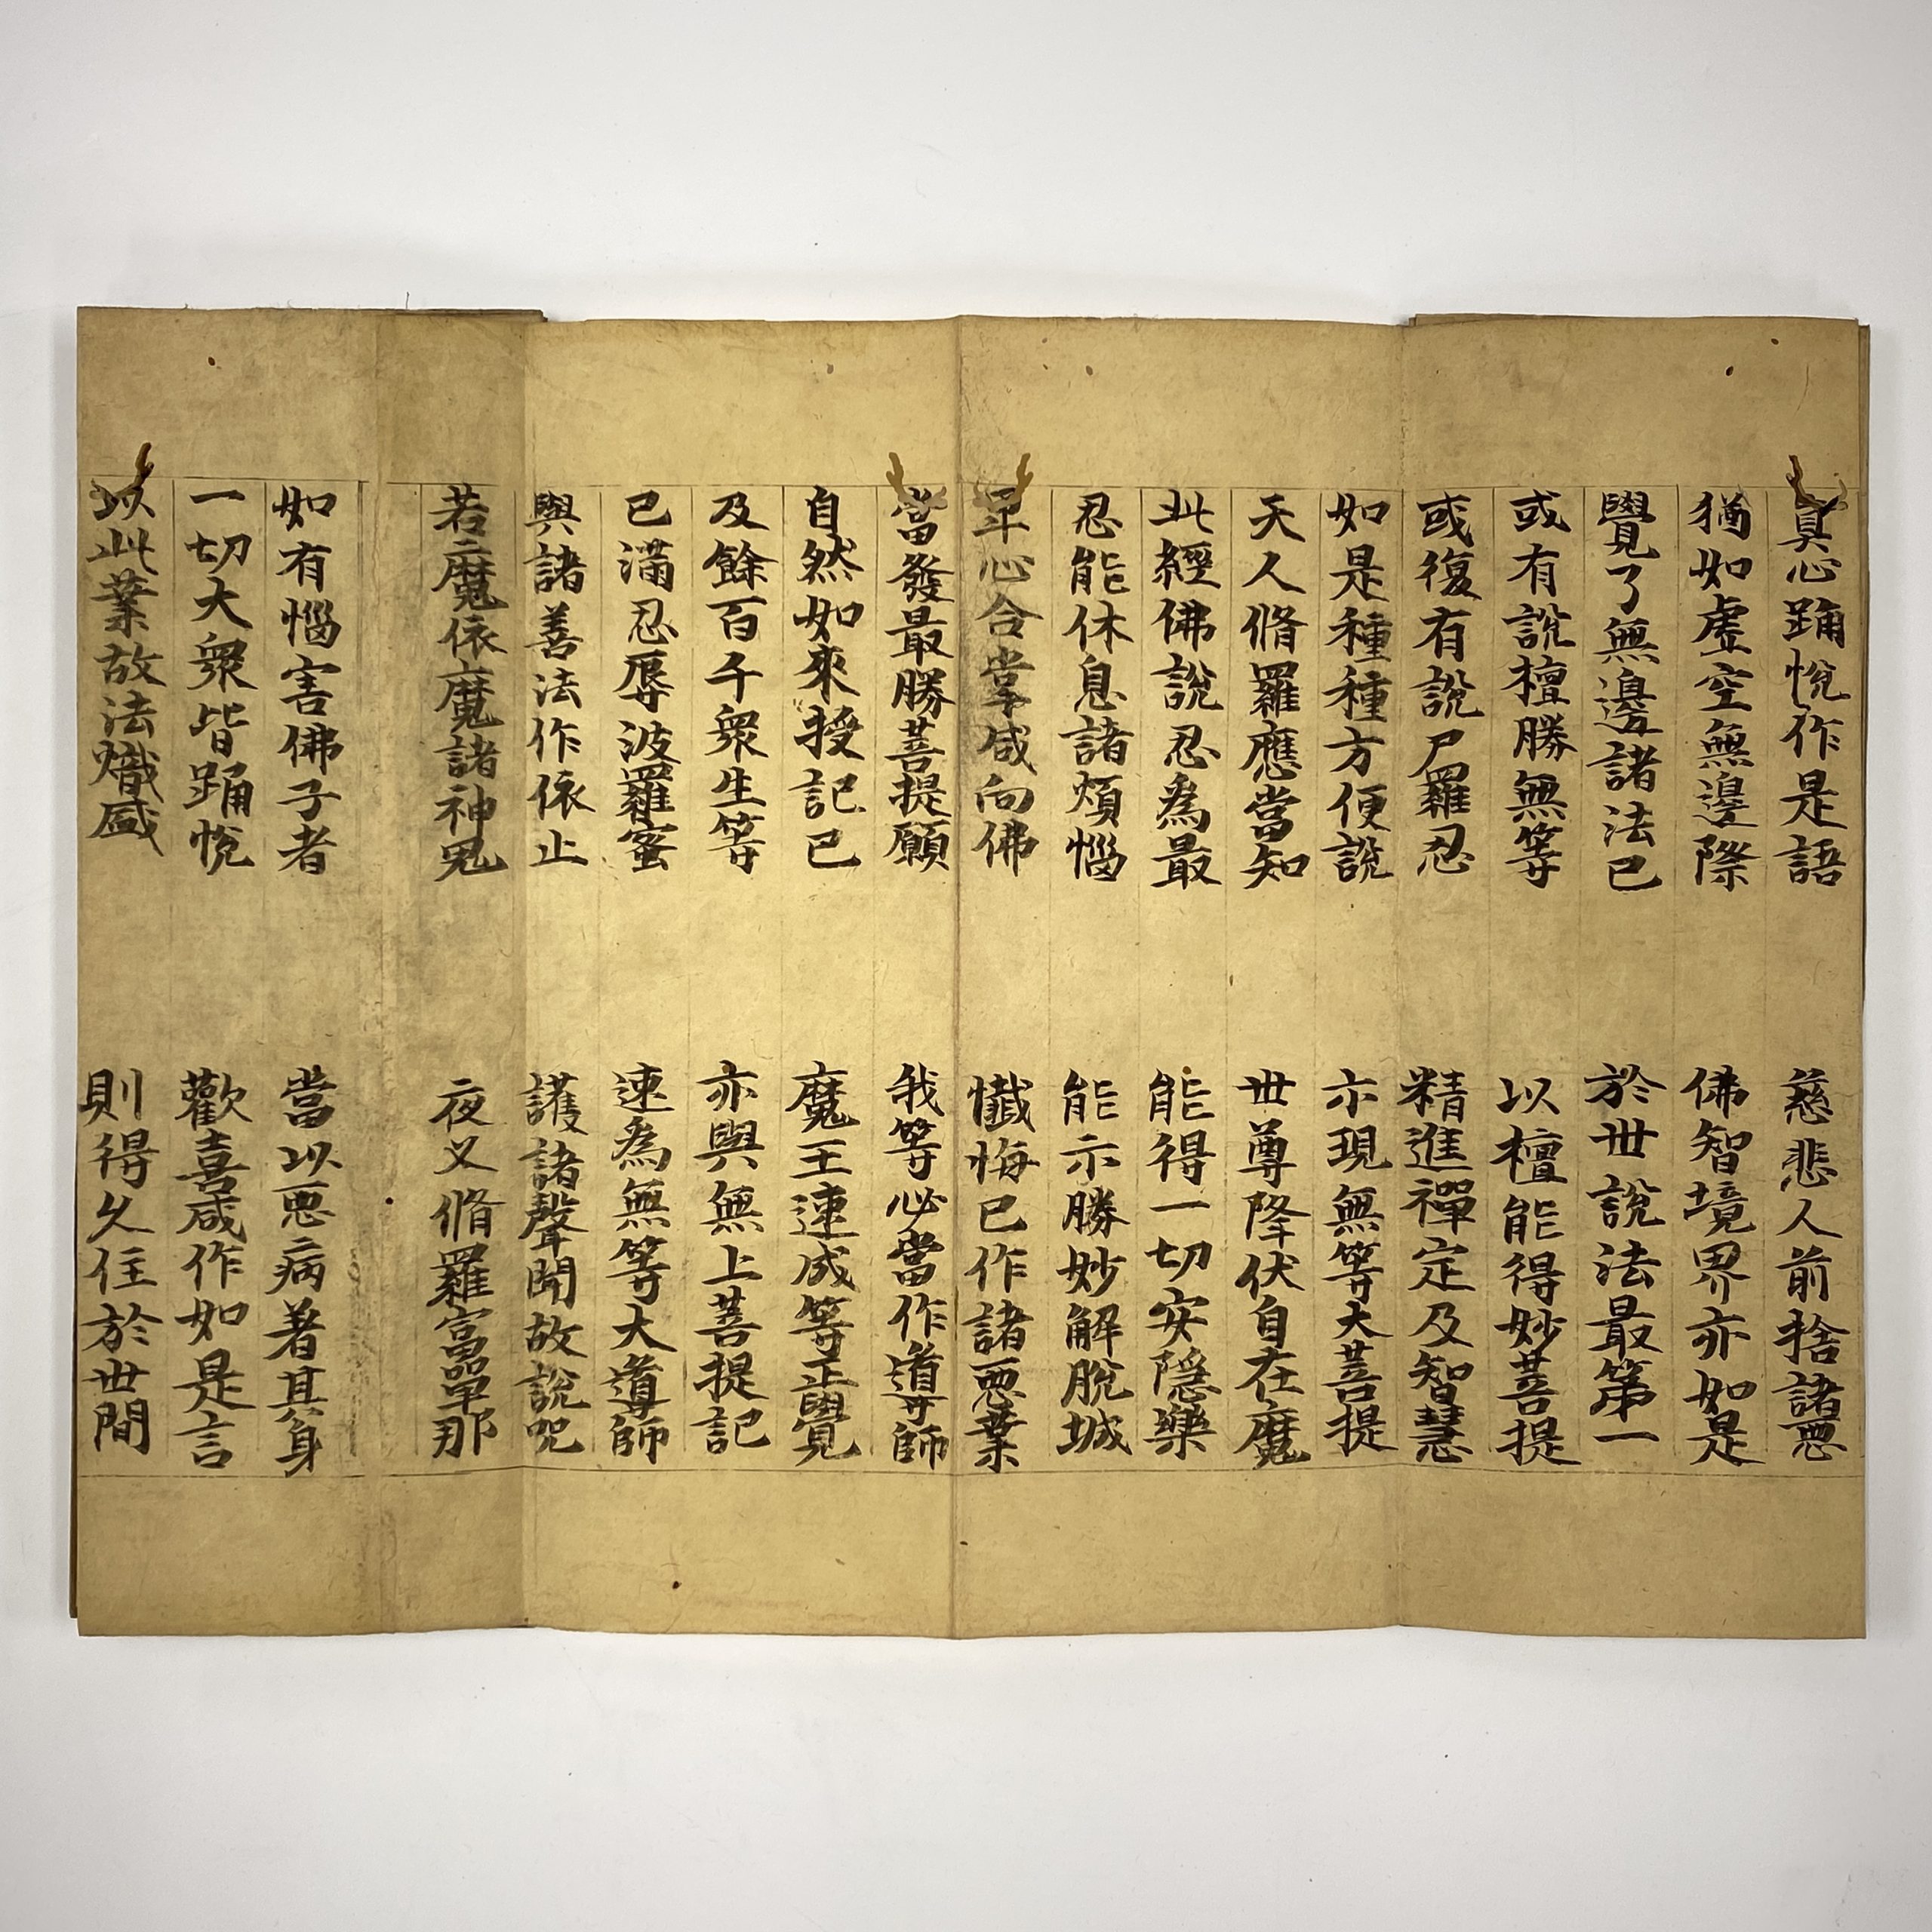 真心踊悅作是語 慈悲人前捨諸惡
猶如虛空無邊際 佛智境界亦如是
覺了無邊諸法已 於世說法最第一
或有說檀勝無等 以檀能得妙菩提
或復有說尸羅忍 精進禪定及智慧
如是種種方便說 示現無等大菩提
天人脩羅應當知 世尊降伏自在魔
此經佛說忍為最 能得一切安隱樂
忍能休息諸煩惱 能示勝妙解脫城
心合掌咸向佛 懺悔已作諸惡業
當發最勝菩提願 我等必當作導師
自然如來授記已 魔王速成等正覺
及餘百千眾生等 亦與無上菩提記
已滿忍辱波羅蜜 速為無等大導師
與諸善法作依止 護諸聲聞故說呪
若魔依魔諸神鬼 夜叉脩羅富單那
如有惱害佛子者 當以惡病著其身
一切大眾皆踊悅 歡喜咸作如是言
以此業故法熾盛 則得久住於世間